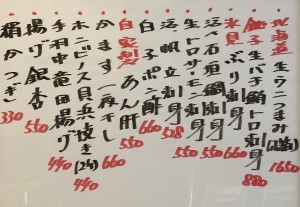 北海道生ウニつまみ(2貫) 1650
銚子生バチ鮪トロ刺 880
氷見ぶり刺身 660
活〆石垣鯛刺身 550
生トロサーモン刺身 550
活帆立刺身 508
白子ポン酢 660
自家製あん肝 550
かます一夜干し 660
ホンビノス貝浜焼き(2ケ) 440
手羽中竜田揚げ 440
揚げ銀杏 550
絹かつぎ 330